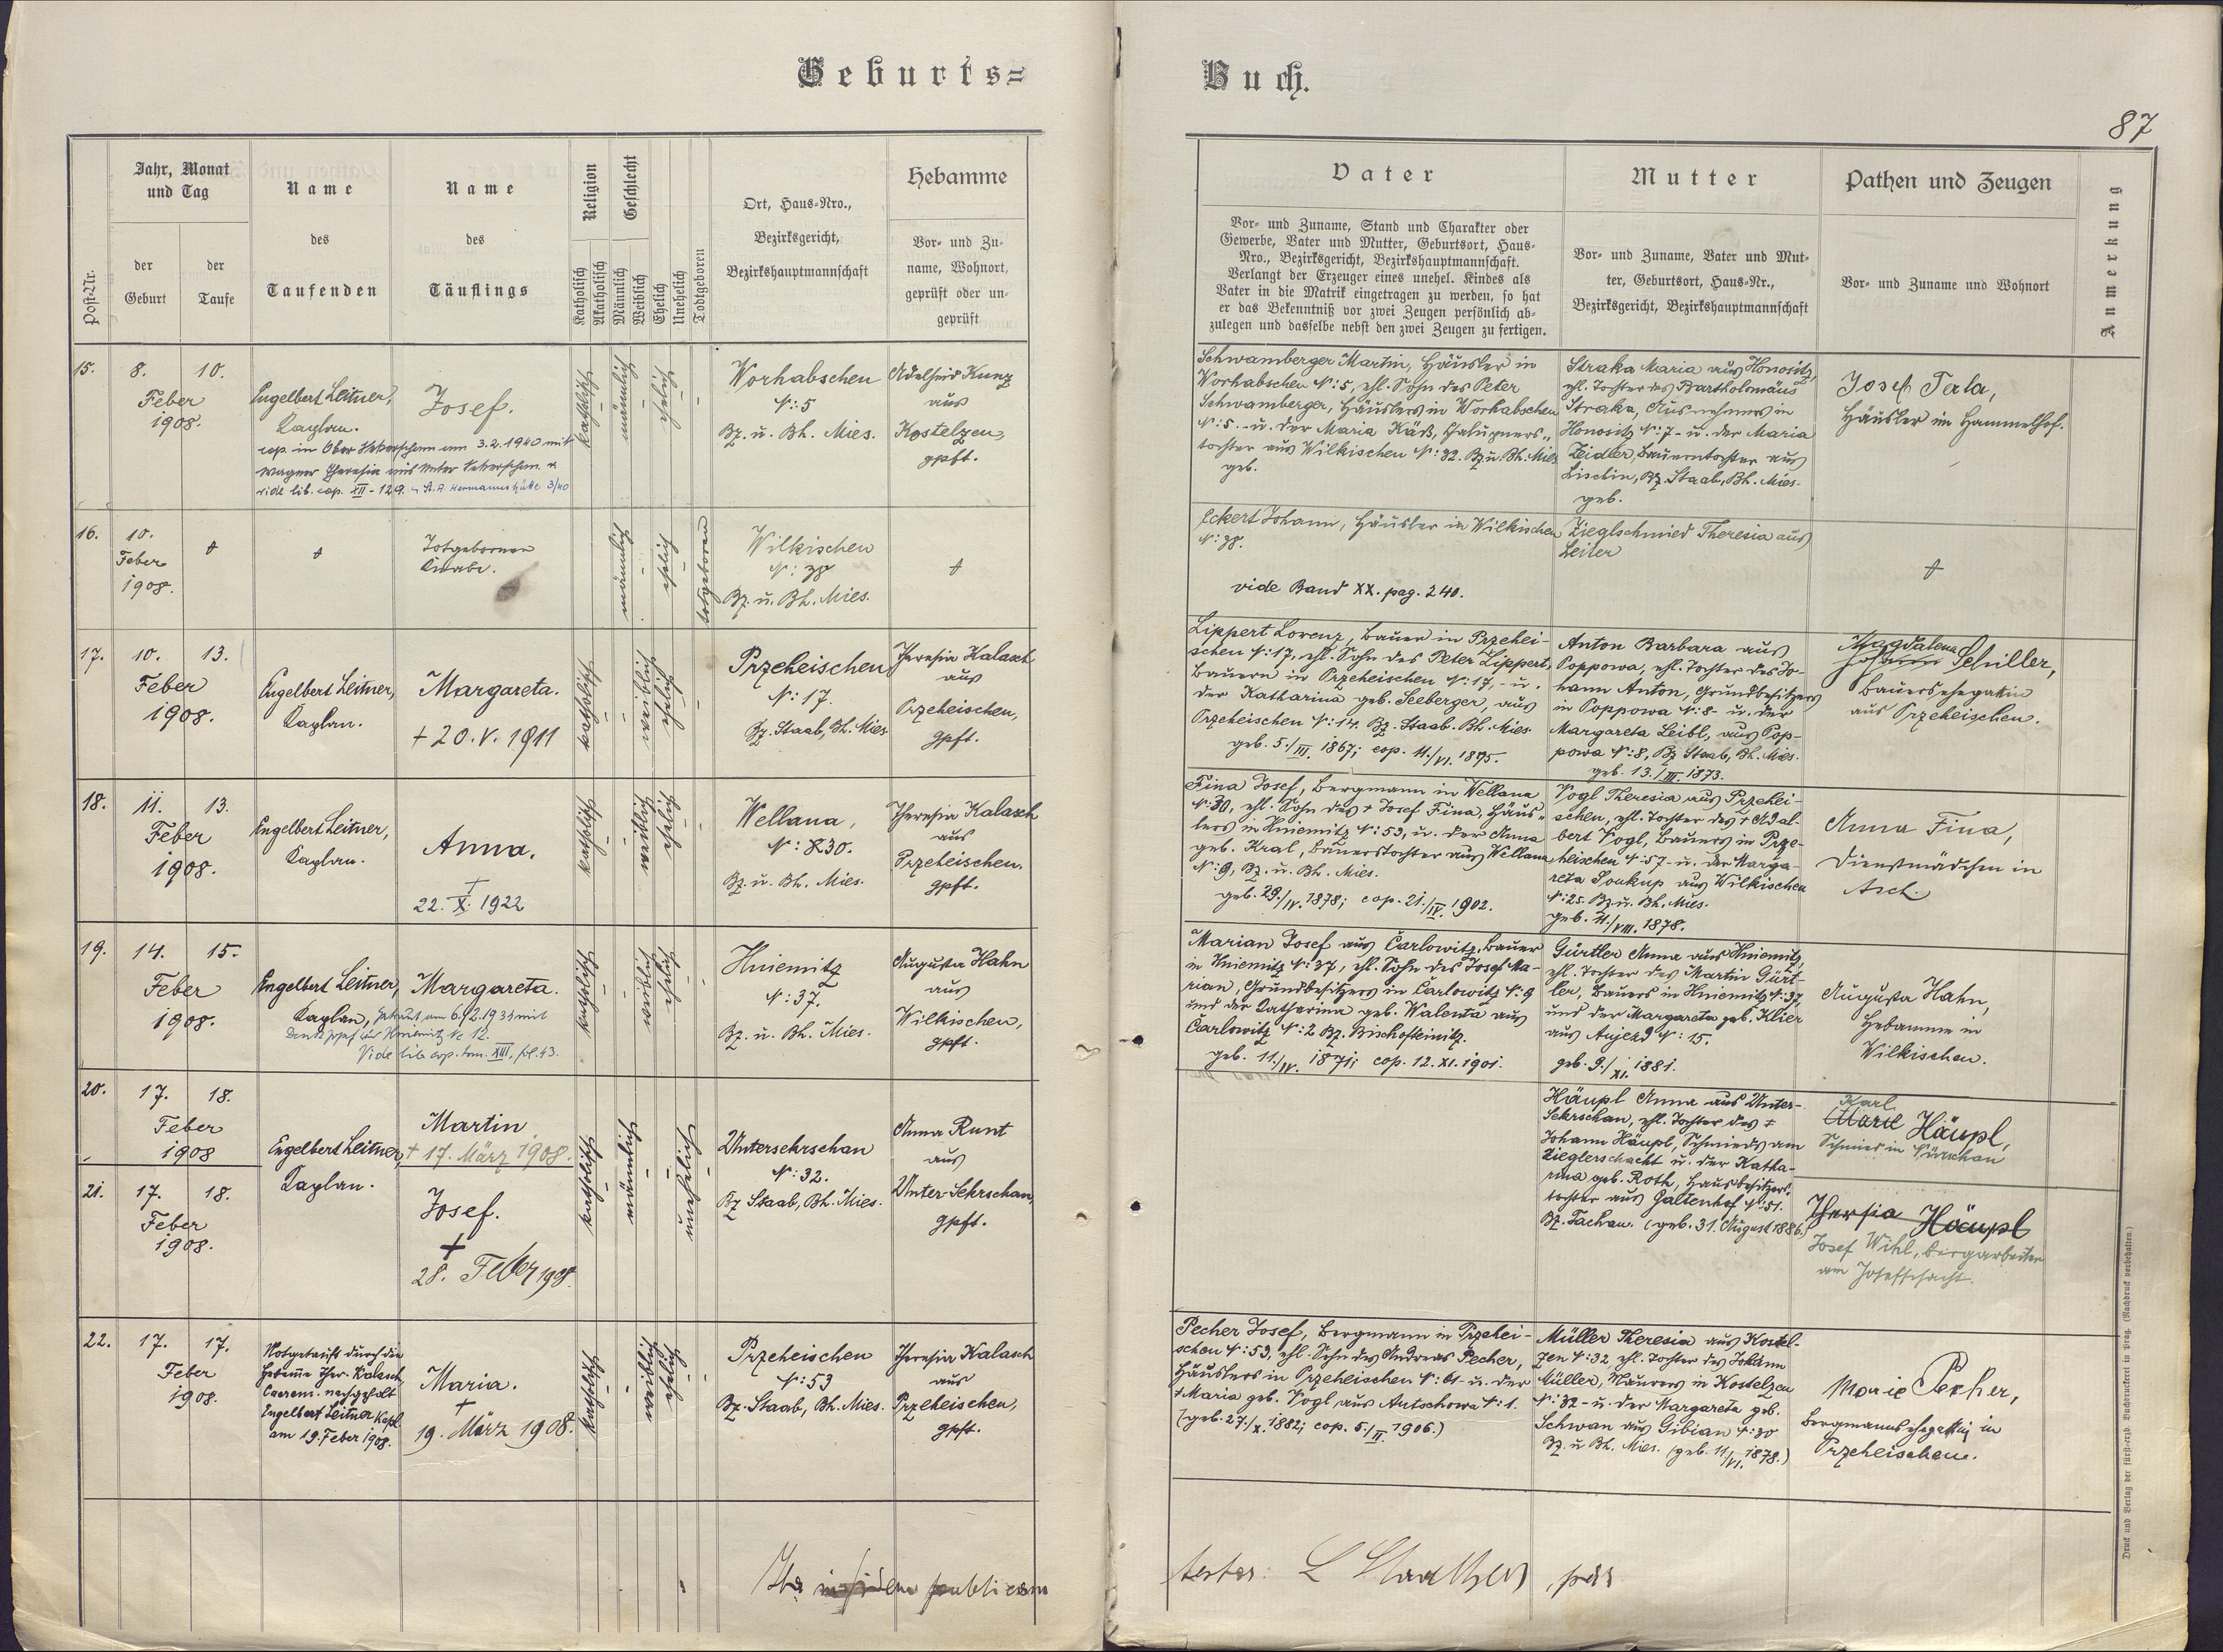 Geburts=
Buch.
87
Post-Nr.
Jahr, Monat
und Tag
der
Geburt
der
Taufe
Name
des
Taufenden
Name
des
Täuflings
Religion
Katholisch
Akatholisch
Geschlecht
Männlich
Weiblich
Ehelich
Unehelich
Todtgeboren
Ort, Haus-Nro.,
Bezirksgericht,
Bezirkshauptmannschaft
Hebamme
Vor- und Zu-
name, Wohnort,
geprüft oder un-
geprüft
Vater
Vor- und Zuname, Stand und Charakter oder
Gewerbe, Vater und Mutter, Geburtsort, Haus-
Nro., Bezirksgericht, Bezirkshauptmannschaft.
Verlangt der Erzeuger eines unehel. Kindes als
Vater in die Matrik eingetragen zu werden, so hat
er das Bekenntniß vor zwei Zeugen persönlich ab-
zulegen und dasselbe nebst den zwei Zeugen zu fertigen.
Mutter
Vor- und Zuname, Vater und Mut-
ter, Geburtsort, Haus-Nr.,
Bezirksgericht, Bezirkshauptmannschaft
Pathen und Zeugen
Vor- und Zuname und Wohnort
Anmerkung
15.
8.
10.
Feber
1908.
Engelbert Leitner,
Kaplan.
Josef.
cop. in Ober Sekerschan am 3.2.1940 mit
Wagner Theresia aus Unter Sekerschan
vide lib. cop. XII - 129. Hermannshütte 3/40
katholisch
männlich
ehelich
Worhabschen
N: 5
Bz. u. Bh. Mies.
Adelheid Kunz
aus
Kostelzen,
gpft.
Schwamberger Martin, Häusler in
Worhabschen N: 5, ehl. Sohn des Peter
Schwamberger, Häuslers in Worhabschen
N: 5. - u. der Maria Käß, Chalupners-
tochter aus Wilkischen N: 32. Bz u. Bh. Mies
geb.
Straka Maria aus Honositz,
ehl. Tochter des Bartholomäus
Straka, Ausnehmers in
Honositz N: 7 - u. der Maria
Zeidler, Bauerntochter aus
Lischin, Bz. Staab, Bh. Mies.
geb.
Josef Perla,
Häusler im Hammelhof.
16.
10.
Feber
1908.
†
†
Totgeborener
Knabe.
männlich
ehelich
totgeboren
Wilkischen
N: 38
Bz. u. Bh. Mies.
†
Eckert Johann, Häusler in Wilkischen
N: 38.
vide Band XX. pag. 240.
Zieglschmied Theresia aus
Leiter
†
17.
10.
13.
Feber
1908.
Engelbert Leitner,
Kaplan.
Margareta.
† 20. V. 1911
katholisch
weiblich
ehelich
Przeheischen
N: 17.
Bz. Staab, Bh. Mies
Theresia Kalasch
aus
Przeheischen,
gpft.
Lippert Lorenz, Bauer in Przehei-
schen N: 17, ehl. Sohn des Peter Lippert,
Bauern in Przeheischen N: 17, - u.
der Katharina geb. Seeberger, aus
Przeheischen N: 14. Bz. Staab. Bh. Mies.
geb. 5./III. 1867; cop. 11./VI. 1895.
Anton Barbara aus
Poppowa, ehl. Tochter des Jo-
hann Anton, Grundbesitzers
in Poppowa N: 8 - u. der
Margareta Leibl, aus Pop-
powa N: 8, Bz Staab, Bh. Mies.
geb. 13./III. 1873.
Magdalena
Johann Schiller,
Bauersehegattin
aus Przeheischen.
18.
11.
13.
Feber
1908.
Engelbert Leitner,
Kaplan.
Anna.
†
22. X. 1922
katholisch
weiblich
ehelich
Wellana,
N: 30.
Bz. u. Bh. Mies.
Theresia Kalasch
aus
Przeheischen.
gpft.
Fina Josef, Bergmann in Wellana
N: 30, ehl. Sohn des † Josef Fina, Häus-
lers in Hniemitz N: 53, u. der Anna
geb. Kral, Bauerstochter aus Wellana
N: 9, Bz. u. Bh. Mies.
geb. 29./IV. 1878; cop. 21./IV. 1902.
Vogl Theresia aus Przehei-
schen, ehl. Tochter des † Adal-
bert Vogl, Bauers in Prze-
heischen N: 57 - u. der Marga-
reta Soukup aus Wilkischen
N: 25. Bz u. Bh. Mies.
geb. 11./VIII. 1878.
Anna Fina,
Dienstmädchen in
Asch.
19.
14.
15.
Feber
1908.
Engelbert Leitner,
Kaplan,
Margareta.
getraut am 6.2.1934 mit
Hniemitz Nr 12.
Vide lib cop. tom. XIII, fol. 43.
katholisch
weiblich
ehelich
Hniemitz
N: 37.
Bz. u. Bh. Mies.
Augusta Hahn
aus
Wilkischen,
gpft.
Marian Josef aus Čarlowitz, Bauer
in Hniemitz N: 37, ehl. Sohn des Josef Ma-
rian, Grundbesitzers in Čarlowitz N: 9
und der Katharina geb. Walenta aus
Čarlowitz N: 2 Bz. Bischofteinitz.
geb. 11./IV. 1871; cop. 12. XI. 1901.
Gürtler Anna aus Hniemitz,
ehl. Tochter des Martin Gürt-
ler, Bauers in Hniemitz N: 37,
und der Margareta geb. Klier
aus Aujezd N: 15.
geb. 9./XI. 1881.
Augusta Hahn,
Hebamme in
Wilkischen.
20.
17.
18.
Feber
1908
Engelbert Leitner,
Kaplan.
Martin
† 17. März 1908.
21.
17.
18.
Feber
1908.
Josef.
†
28. Feber 1908.
katholisch
männlich
unehelich
Untersekrschan
N: 32.
Bz Staab, Bh. Mies.
Anna Runt
aus
Unter-Sekrschan,
gpft.
Häupl Anna aus Unter-
Sekrschan, ehl. Tochter des †
Johann Häupl, Schmieds am
Zieglerschacht u. der Katha-
rina geb. Roth, Hausbesitzers-
tochter aus Galtenhof N: 51.
Bz. Tachau. (geb. 31. August 1886.)
Karl
Häupl,
Schmied in Nürschan
Theresia Häupl
Josef Wihl, Bergarbeiter
am Josefschacht.
22.
17.
17.
Feber
1908.
Notgetauft durch die
Hebamme Ther. Kalasch,
Caerem. nachgeholt
Engelbert Leitner Kapl.
am 19. Feber 1908.
Maria.
†
19. März 1908.
katholisch
weiblich
ehelich
Przeheischen
N: 53
Bz. Staab, Bh. Mies.
Theresia Kalasch
aus
Przeheischen,
gpft.
Pecher Josef, Bergmann in Przehei-
schen N: 53, ehl. Sohn des Andreas Pecher,
Häuslers in Przeheischen N: 61 - u. der
† Maria geb. Vogl aus Autschowa N: 1.
(geb. 27./X. 1882; cop. 5./II. 1906.)
Müller Theresia aus Kostel-
zen N: 32, ehl. Tochter des Johann
Müller, Maurers in Kostelzen
N: 32 - u. der Margareta geb.
Schwan aus Gibian N: 30
Bz. u Bh. Mies. (geb. 11./VI. 1878.)
Marie Pecher,
Bergmannsehegattin in
Przeheischen.
publicam
Druck und Verlag der fürst-erzb. Buchdruckerei in Prag. (Nachdruck vorbehalten.)